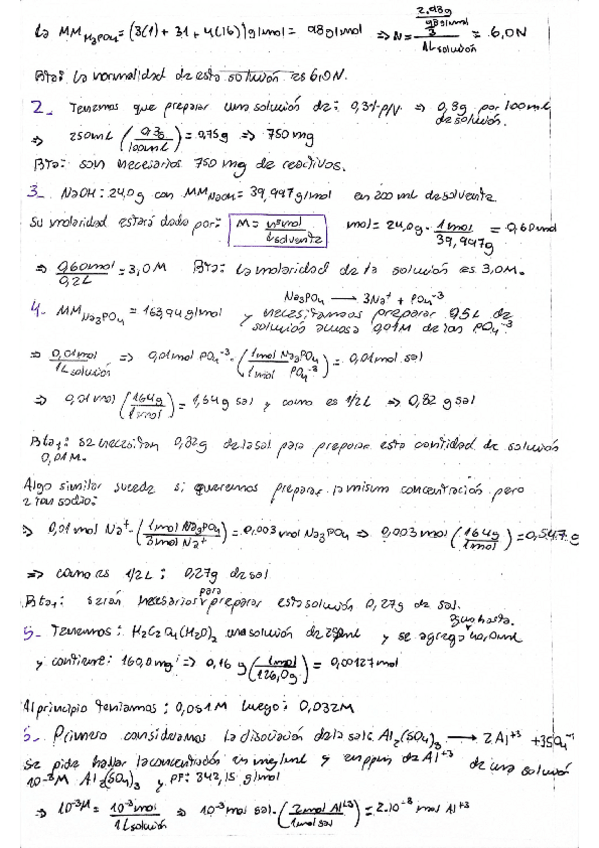 La MM H₃PO₄ = (3(1) + 31 + 4(16)) g/mol = 98 g/mol ⇒ N = (2,98g / (98 g/mol / 3)) / 1L solución = 6,0N
Rta: La normalidad de esta solución es 6,0N.
2_ Tenemos que preparar una solución de: 0,3% p/v. ⇒ 0,3g por 100mL de solución.
⇒ 250mL (0,3g / 100mL) = 0,75g ⇒ 750 mg
Rta: son necesarios 750 mg de reactivos.
3_ NaOH: 24,0g con MM NaOH = 39,997g/mol en 200 mL de solvente
Su molaridad estará dada por: M = nºmol / Lsolvente mol = 24,0g · 1mol / 39,997g = 0,60mol
⇒ 0,60mol / 0,2L = 3,0M Rta: La molaridad de la solución es 3,0M.
Na₃PO₄ → 3Na⁺ + PO₄⁻³
4_ MM Na₃PO₄ = 163,94g/mol y necesitamos preparar 0,5L de solución acuosa 0,01M de ion PO₄⁻³
⇒ 0,01mol / 1L solución ⇒ 0,01mol PO₄⁻³ · (1mol Na₃PO₄ / 1mol PO₄⁻³) = 0,01mol sal
⇒ 0,01 mol (164g / 1mol) = 1,64g sal y como es 1/2L ⇒ 0,82 g sal
Rta₁: se necesitan 0,82g de la sal para preparar esta cantidad de solución 0,01M.
Algo similar sucede si queremos preparar la misma concentración pero
ion sodio:
⇒ 0,01mol Na⁺ · (1mol Na₃PO₄ / 3mol Na⁺) = 0,003mol Na₃PO₄ ⇒ 0,003mol (164g / 1mol) = 0,547g
⇒ como es 1/2L: 0,27g de sal
Rta₂: serán necesarios para preparar esta solución 0,27g de sal.
5_ Tenemos: H₂C₂O₄(H₂O)₂ una solución de 25mL y se agrega hasta 40,0mL
y contiene: 160,0mg ⇒ 0,16 g (1mol / 126,0g) = 0,00127mol
Al principio teníamos: 0,051M luego: 0,032M
6_ Primero consideramos la disociación de la sal: Al₂(SO₄)₃ → 2Al⁺³ + 3SO₄⁻
Se pide hallar la concentración en mg/mL y en ppm de Al⁺³ de una solución
10⁻³M Al₂(SO₄)₃ y PF: 342,15 g/mol
⇒ 10⁻³M = 10⁻³mol / 1L solución ⇒ 10⁻³mol sal · (2mol Al⁺³ / 1mol sal) = 2·10⁻³ mol Al⁺³